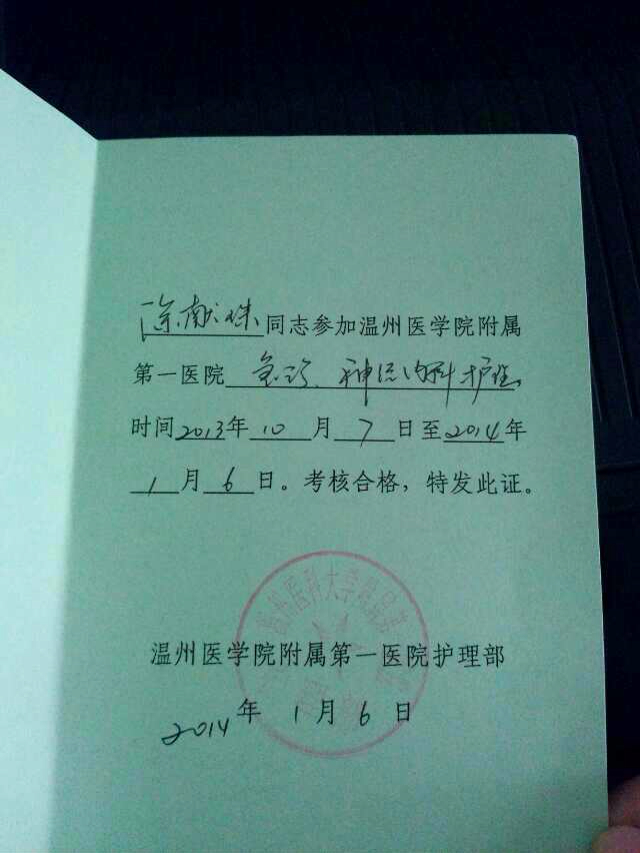 徐献珠同志参加温州医学院附属
第一医院急诊、神经内科护理
时间2013年10月7日至2014年
1月6日。考核合格，特发此证。
温州医科大学附属第一
温州医学院附属第一医院护理部
2014年1月6日